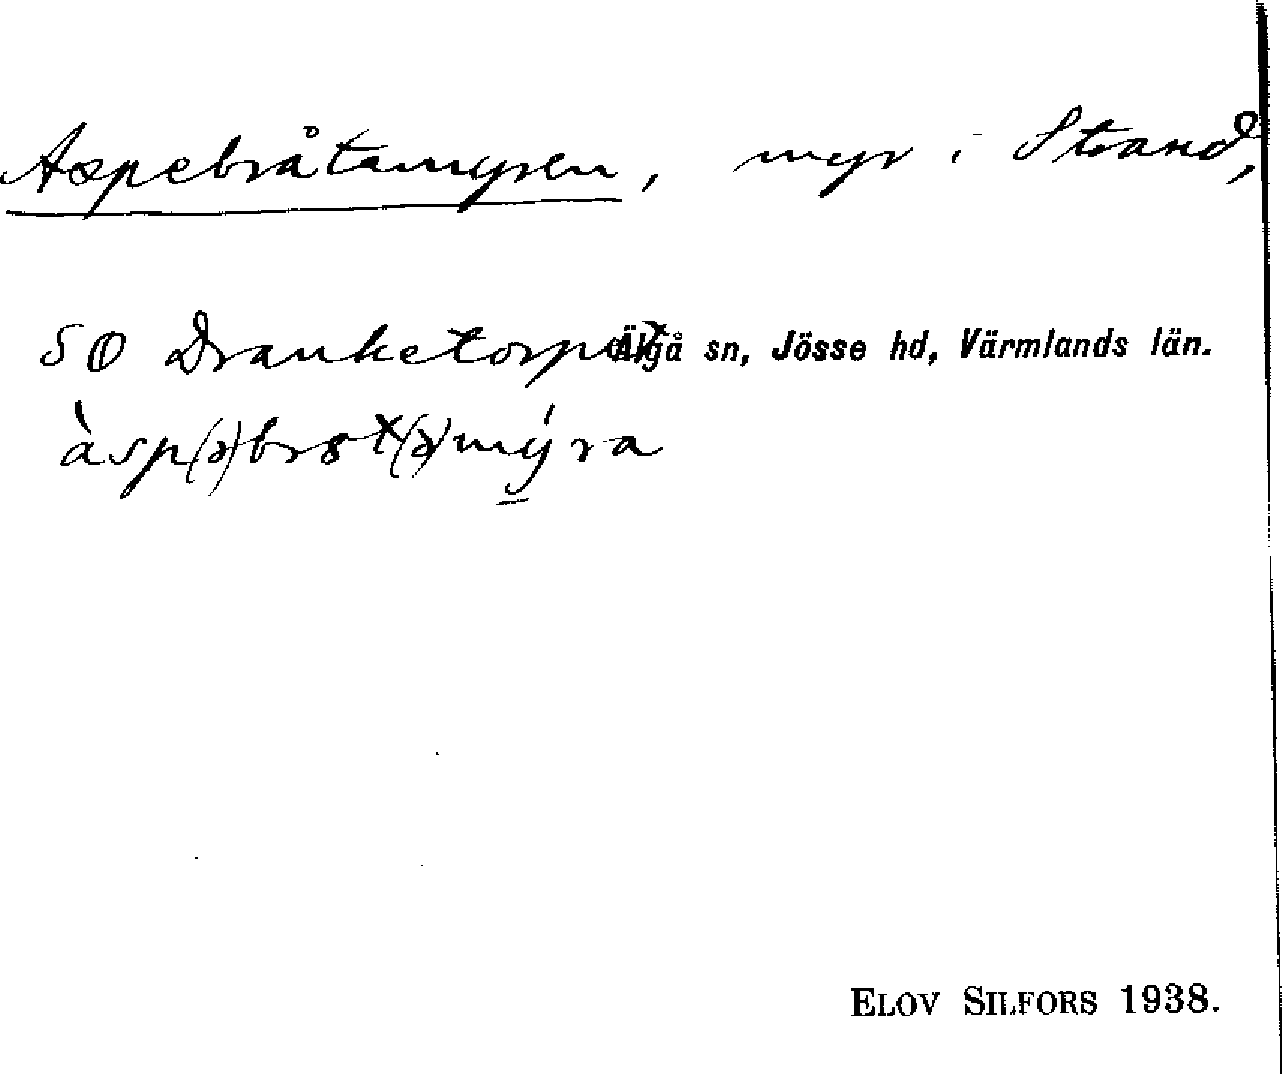 Aspebråtamyren, myr i Strand,
SO Dranketorpet Älgå sn, Jösse hd, Värmlands län.
àsp(ə)brɞt(ə)mýra
ELOV SILFORS 1938.